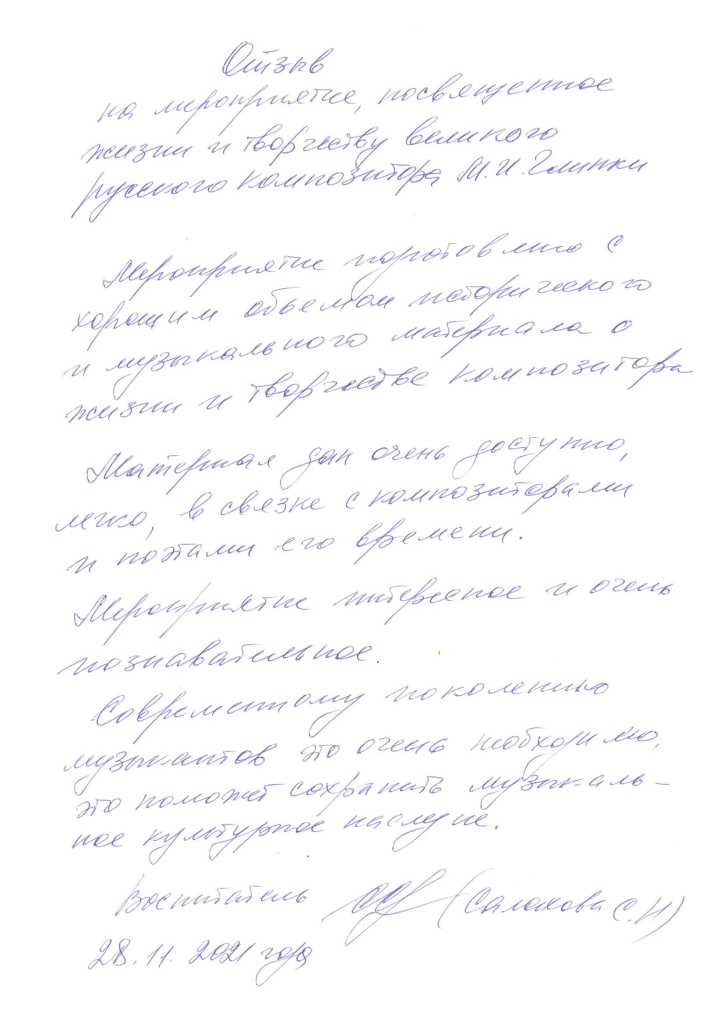 Отзыв
на мероприятие, посвященное
жизни и творчеству великого
русского композитора М.И.Глинки
Мероприятие подготовлено с
хорошим объемом исторического
и музыкального материала о
жизни и творчестве композитора
Материал дан очень доступно,
легко, в связке с композиторами
и поэтами его времени.
Мероприятие интересное и очень
познавательное.
Современному поколению
музыкантов это очень необходимо,
это поможет сохранить музыкаль-
ное культурное наследие.
Воспитатель (Салахова С.Н)
28.11.2021 года